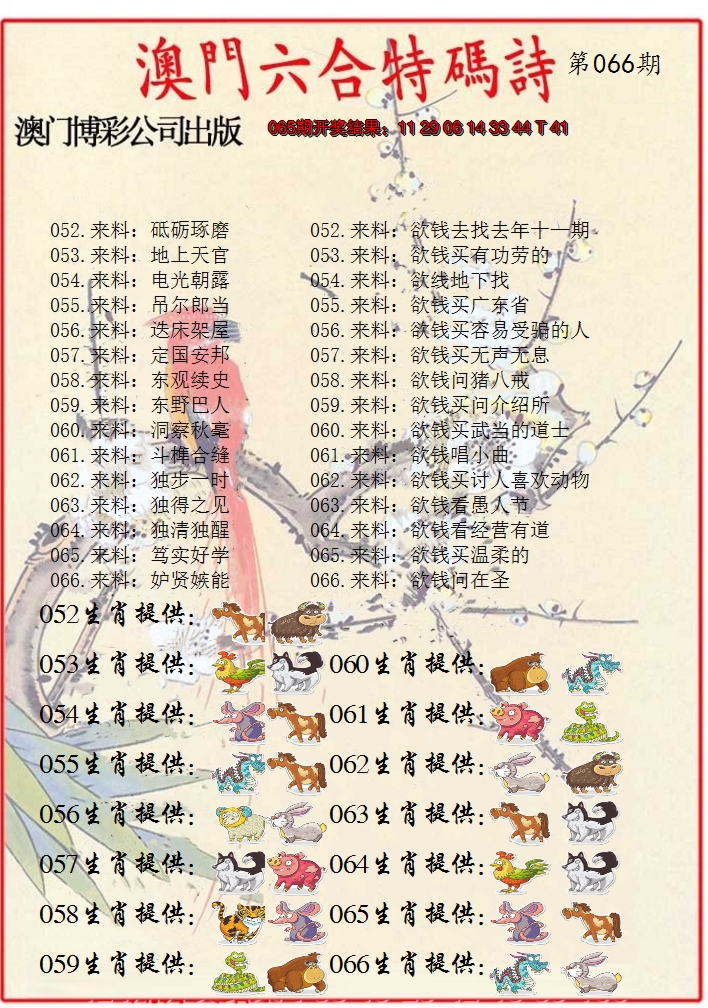 澳門六合特碼詩 第066期
澳门博彩公司出版 065期开奖结果：11 29 06 14 33 44 T 41
052.来料：砥砺琢磨 052.来料：欲钱去找去年十一期
053.来料：地上天官 053.来料：欲钱买有功劳的
054.来料：电光朝露 054.来料：欲线地下找
055.来料：吊尔郎当 055.来料：欲钱买广东省
056.来料：迭床架屋 056.来料：欲钱买容易受骗的人
057.来料：定国安邦 057.来料：欲钱买无声无息
058.来料：东观续史 058.来料：欲钱问猪八戒
059.来料：东野巴人 059.来料：欲钱买问介绍所
060.来料：洞察秋毫 060.来料：欲钱买武当的道士
061.来料：斗榫合缝 061.来料：欲钱唱小曲
062.来料：独步一时 062.来料：欲钱买讨人喜欢动物
063.来料：独得之见 063.来料：欲钱看愚人节
064.来料：独清独醒 064.来料：欲钱看经营有道
065.来料：笃实好学 065.来料：欲钱买温柔的
066.来料：妒贤嫉能 066.来料：欲钱问在圣
052生肖提供：
053生肖提供： 060生肖提供：
054生肖提供： 061生肖提供：
055生肖提供： 062生肖提供：
056生肖提供： 063生肖提供：
057生肖提供： 064生肖提供：
058生肖提供： 065生肖提供：
059生肖提供： 066生肖提供：